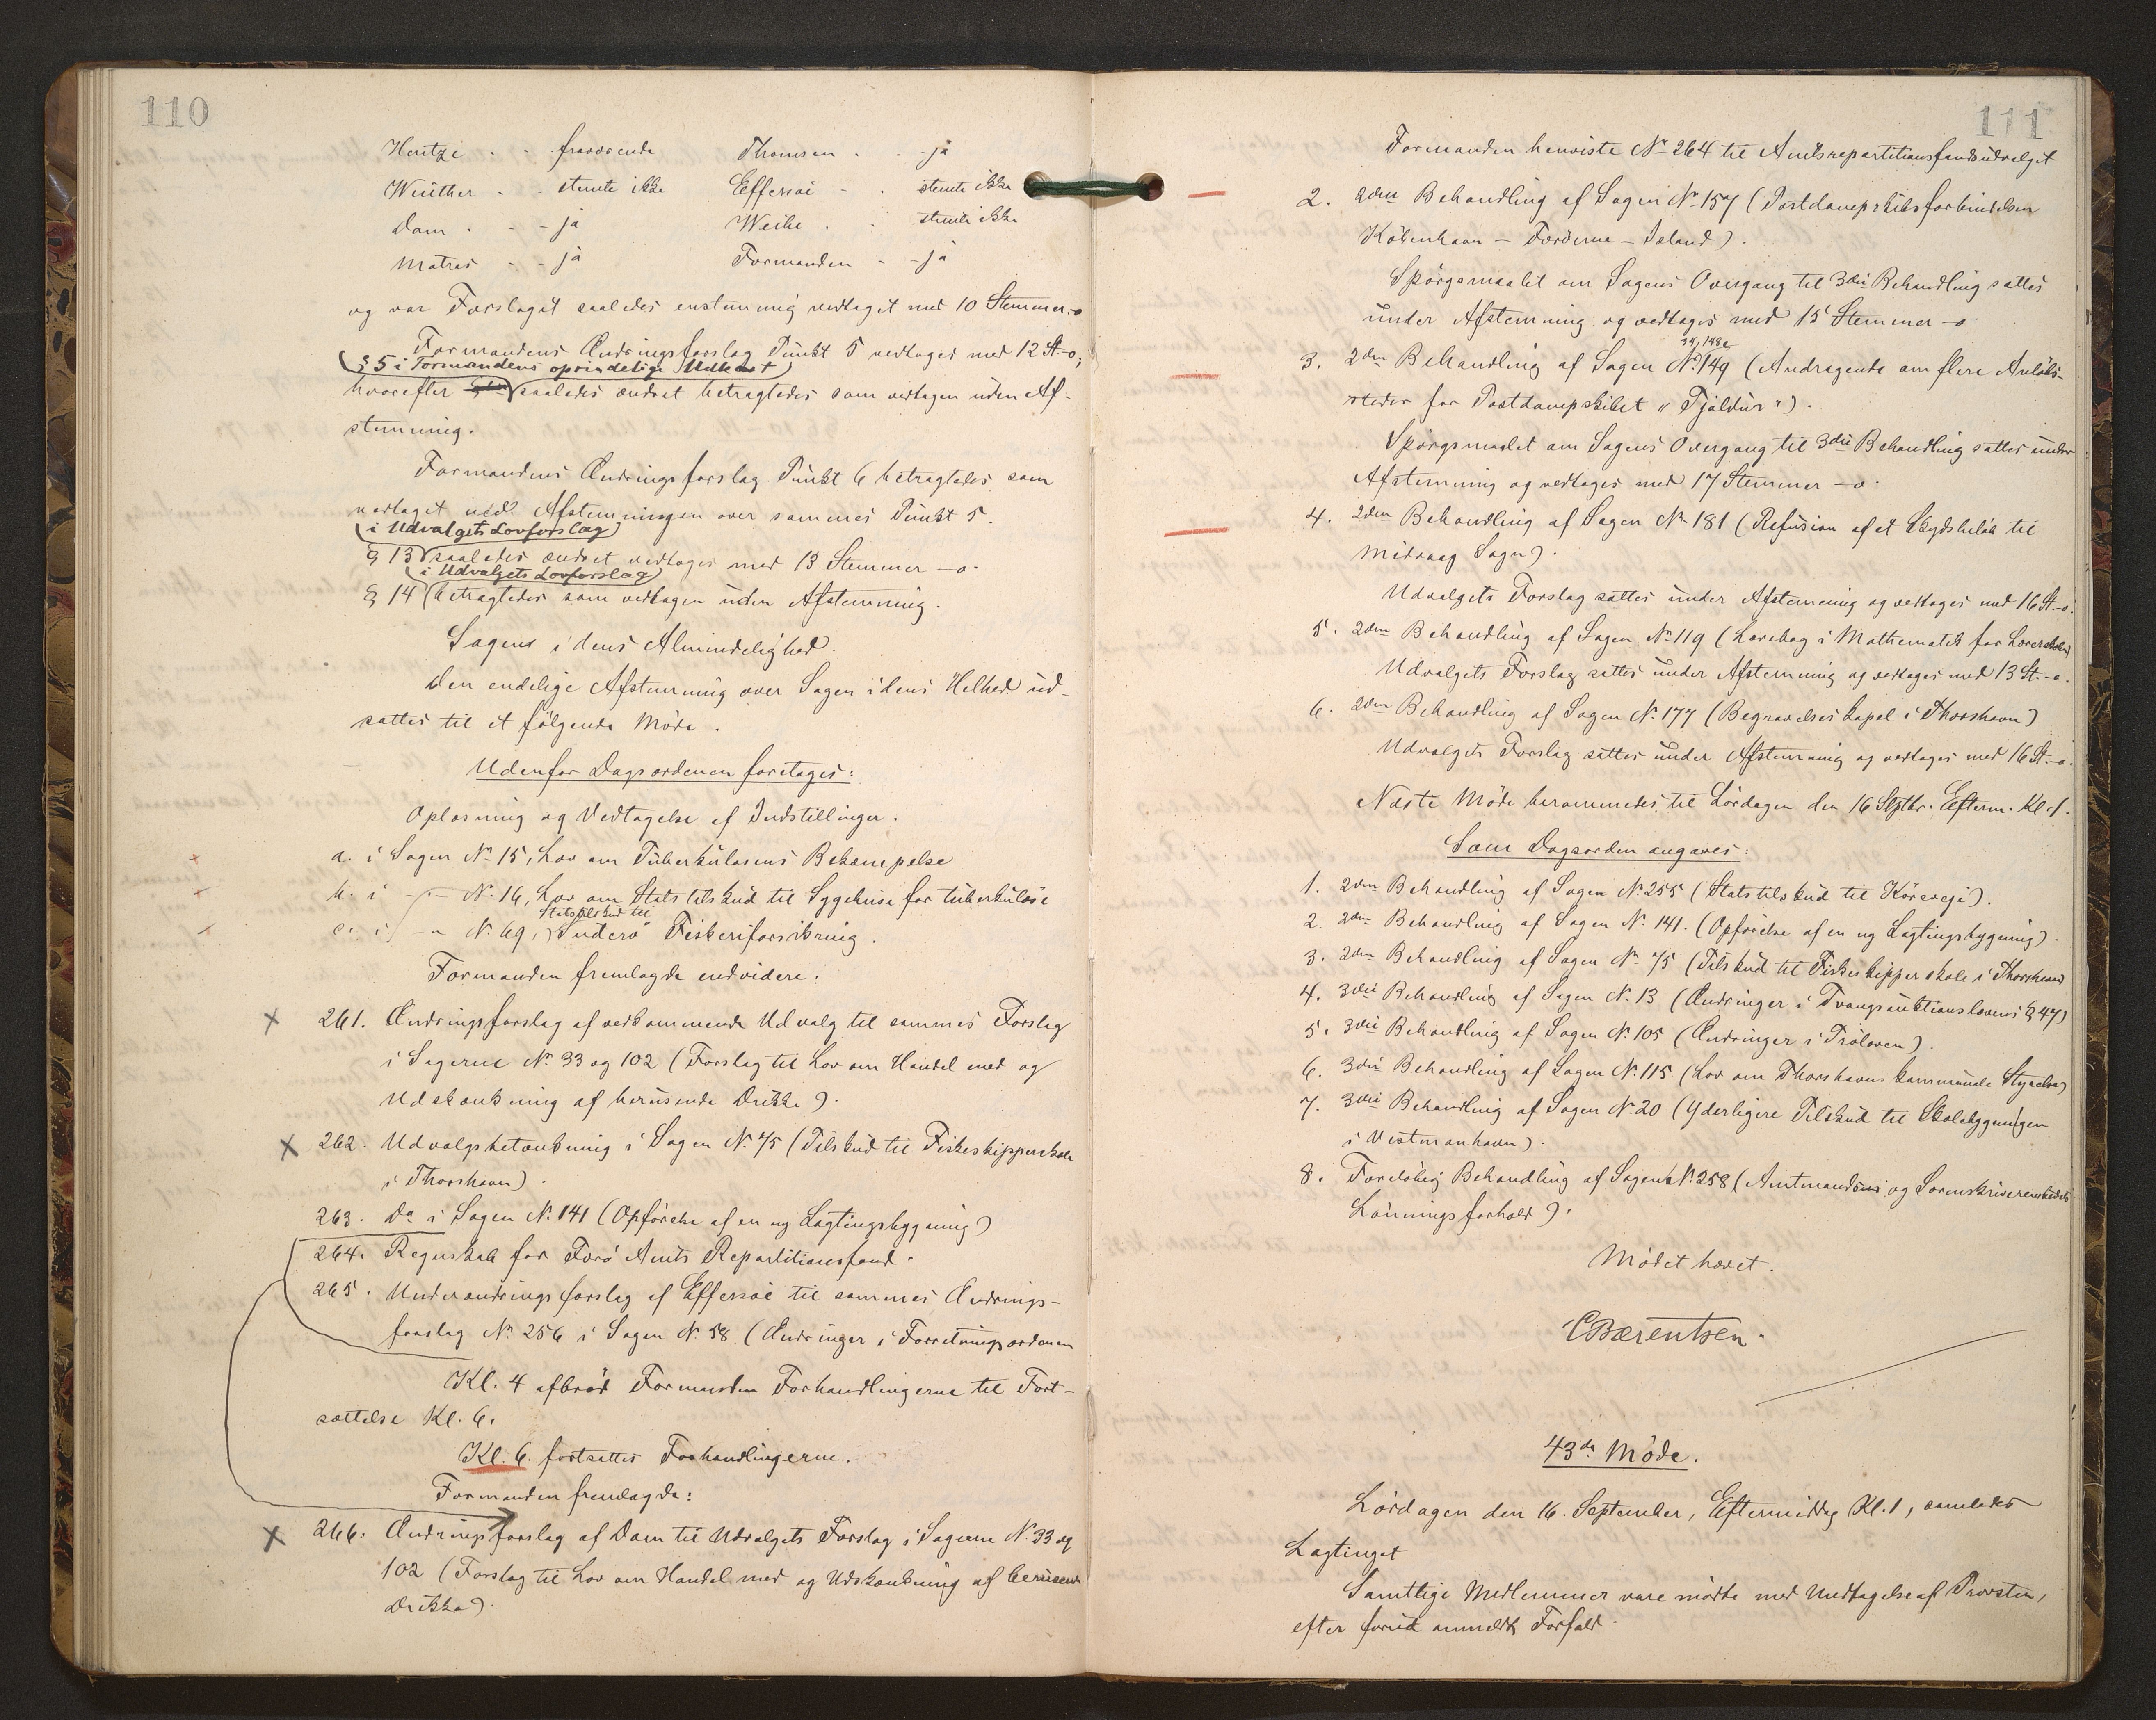 110
Heutze - - fraværende Thomsen - - ja
Winther - - stemte ikke Effersøe - - stemte ikke
Dam - - ja Weihe - - stemte ikke
Matras - - ja Formanden - - ja
og var Forslaget saaledes enstemmig vedtaget med 10 Stemmer -o
Formandens Ændringsforslag Punkt 5 vedtoges med 12 St. -o;
(§ 5 i Formandens oprindelige Udkast)
hvorefter saaledes ændret betragtedes som vedtagen uden Af-
stemning.
Formandens Ændringsforslag Punkt 6 betragtedes som
vedtaget ved Afstemningen over sammes Punkt 5.
(i Udvalgets Lovforslag)
§ 13 saaledes ændret vedtoges med 13 Stemmer -o-
(i Udvalgets Lovforslag)
§ 14 betragtedes som vedtagen uden Afstemning.
Sagens i dens Almindelighed.
Den endelige Afstemning over Sagen i dens Helhed ud-
sattes til et følgende Møde.
Udenfor Dagsordenen foretoges:
Oplæsning og Vedtagelse af Indstillinger.
a. i Sagen No 15, Lov om Tuberkulosens Bekæmpelse
b. i -"- No 16, Lov om Statstilskud til Sygehuse for tuberkuløse
Statstilskud til
c. i -"- No 69, Suderø Fiskeriforsikring.
Formanden fremlagde endvidere:
261. Ændringsforslag af vedkommende Udvalg til sammes Forslag
i Sagerne No 33 og 102 (Forslag til Lov om Handel med og
Udskænkning af berusende Drikke).
262. Udvalgsbetænkning i Sagen No. 75 (Tilskud til Fiskeskipperskole
i Thorshavn).
263. Do i Sagen No. 141 (Opførelse af en ny Lagtingsbygning)
264. Regnskab for Færø Amts Repartitionsfond.
265. Underændringsforslag af Effersøe til sammes Ændrings-
forslag No 256 i Sagen No. 58 (Ændringer i Forretningsordenen
Kl. 4 afbrød Formanden Forhandlingerne til Fort-
sættelse Kl. 6.
Kl. 6. fortsattes Forhandlingerne.
Formanden fremlagde:
266. Ændringsforslag af Dam til Udvalgets Forslag i Sagerne No 33 og
102 (Forslag til Lov om Handel med og Udskænkning af berusende
Drikke).
111
Formanden henviste No 264 til Amtsrepartitionsfondsudvalget
2. 2den Behandling af Sagen No 157 (Postdampskibsforbindelsen
København - Færøerne - Island).
Spørgsmaalet om Sagens Overgang til 3die Behandling sattes
under Afstemning og vedtoges med 15 Stemmer -o-
34, 148 &
3. 2den Behandling af Sagen No 149 (Andragende om flere Anløbs-
steder for Postdampskibet "Tjaldur").
Spørgsmaalet om Sagens Overgang til 3die Behandling sattes under
Afstemning og vedtoges med 17 Stemmer -o-
4. 2den Behandling af Sagen No 181 (Refusion af et Skydsbeløb til
Midvaag Sogn).
Udvalgets Forslag sattes under Afstemning og vedtoges med 16 St. -o-
5. 2den Behandling af Sagen No 119 (Lærebog i Mathematik for Lærerskolen)
Udvalgets Forslag sattes under Afstemning og vedtoges med 13 St. -o.
6. 2den Behandling af Sagen No. 177 (Begravelseskapel i Thorshavn)
Udvalgets Forslag sattes under Afstemning og vedtoges med 16 St. -o-
Næste Møde berammedes til Lørdagen den 16 Septbr. Efterm. Kl. 1.
Som Dagsorden angaves:
1. 2den Behandling af Sagen No. 255 (Statstilskud til Køreveje).
2. 2den Behandling af Sagen No. 141. (Opførelse af en ny Lagtingsbygning).
3. 2den Behandling af Sagen No 75 (Tilskud til Fiskeskipperskole i Thorshavn)
4. 3die Behandling af Sagen No. 13 (Ændringer i Tvangsauktionslovens § 47)
5. 3die Behandling af Sagen No. 105 (Ændringer i Trøloven).
6. 3die Behandling af Sagen No. 115 (Lov om Thorshavns kommunale Styrelse)
7. 3die Behandling af Sagen No. 20 (Yderligere Tilskud til Skolebygningen
i Vestmanhavn).
8. Foreløbig Behandling af Sagen No. 258 (Amtmandens og Sorenskriverembedets
Lønningsforhold).
Mødet hævet.
CBærentsen.
43de Møde.
Lørdagen den 16. September, Eftermiddag Kl. 1, samledes
Lagtinget
Samtlige Medlemmer vare mødte med Undtagelse af Provsten,
efter forud anmeldt Forfald.